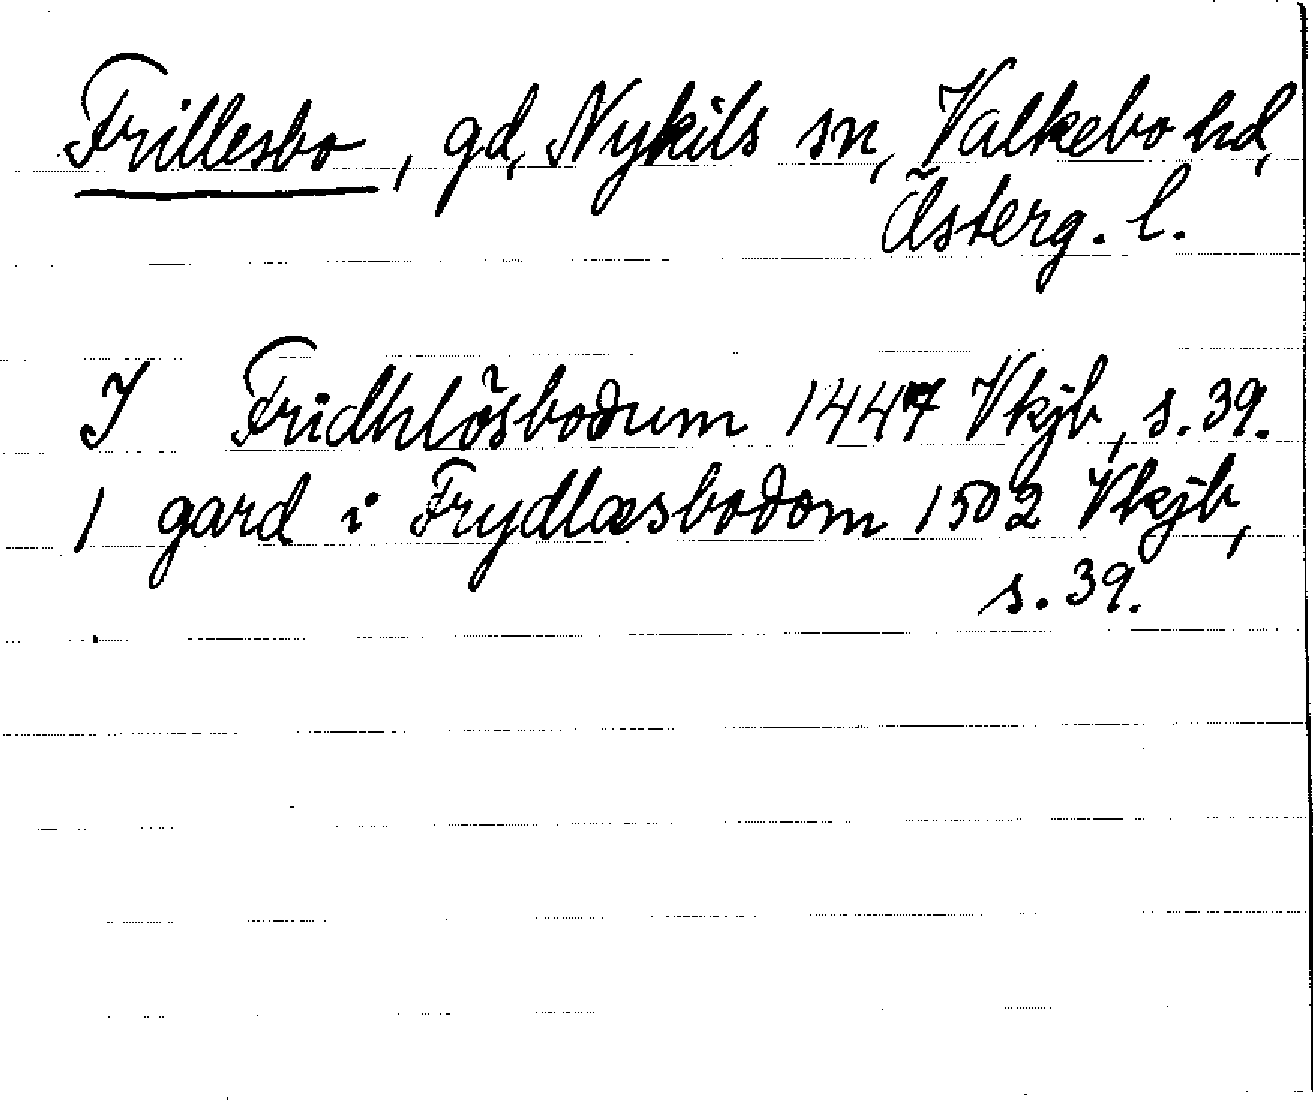 Frillesbo, gd, Nykils sn, Valkebo hd,
Österg. l.
I Fridhlösbodum 1447 Vkjb, s. 39.
1 gard i Frydlæsbodom 1502 Vkjb,
s. 39.